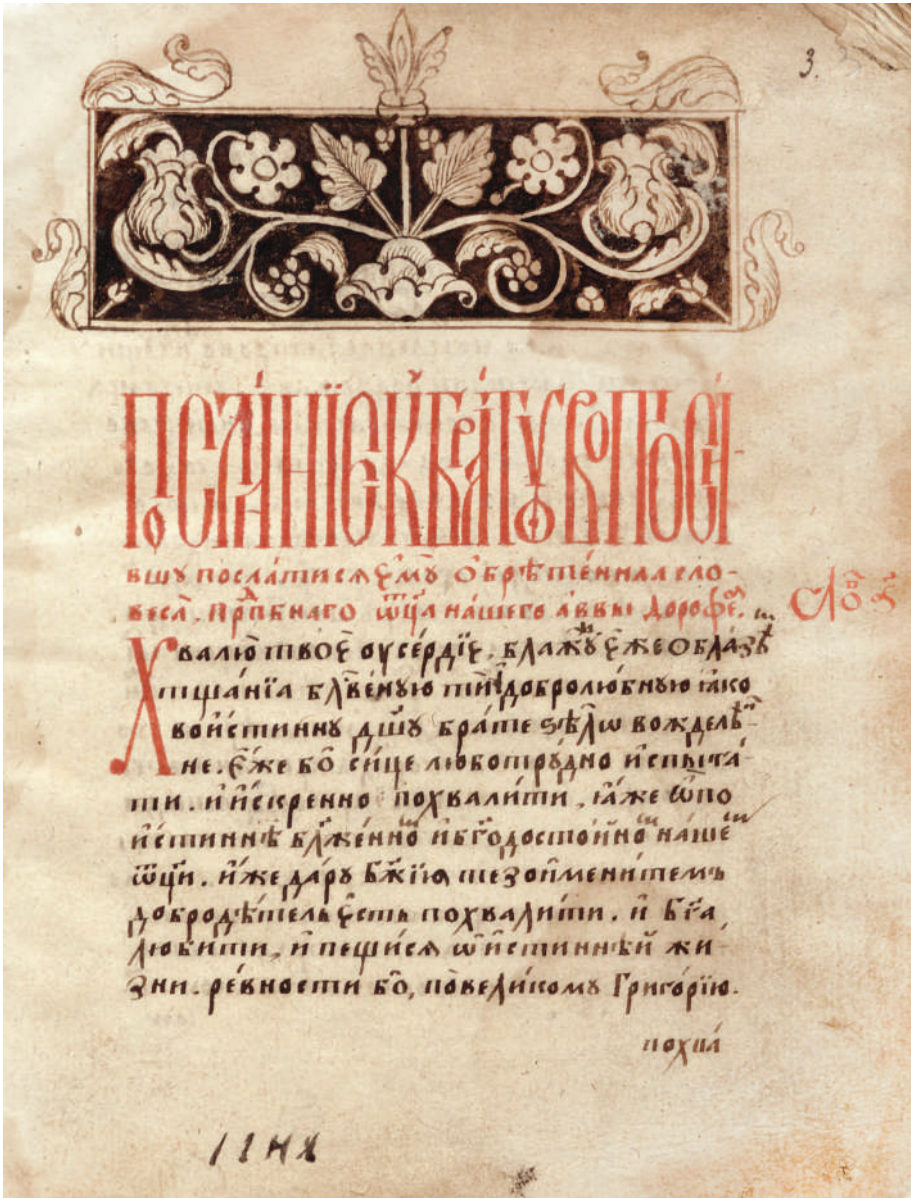 3.
ПОСЛА́НЇЕ К БРА́ТУ ВОПРОСИ́-
вшу посла́тися є҆мꙋ̀ ѡ҆брѣте́ннаѧ сло-
веса̀. прпⷣбнаго ѿц҃а на́шего а҆ввы̀ дороѳе́а.
Хвалю̀ твоѐ ѹ҆се́рдїе. бл҃жꙋ̀ є҆́же
тща́нїѧ бл҃ве́ную ти̏ добролю́бную ꙗ҆́ко
вои́стинну дш҃ꙋ̀ бра́те ѕѣлѡ̀ вожделѣ-
не. є҆́же бо̀ си́це люботрꙋ́дно и҆спыта́-
ти. и҆ и҆́скренно похвали́ти. ꙗ҆́же ѿ по
и҆́стиннѣ бл҃же́нномъ и҆ бг҃одосто́йномъ на́шемъ
ѿц҃ѝ. и҆́же да́рꙋ бж҃їѧ тезоимени́темъ
добродѣ́тель є҆́сть похвали́ти. и҆ бг҃а
люби́ти. и҆ пещи́ся ѡ҆ и҆́стиннѣй жи́-
зни. ре́вности бо̀, по вели́комꙋ Григо́рїю.
похва́